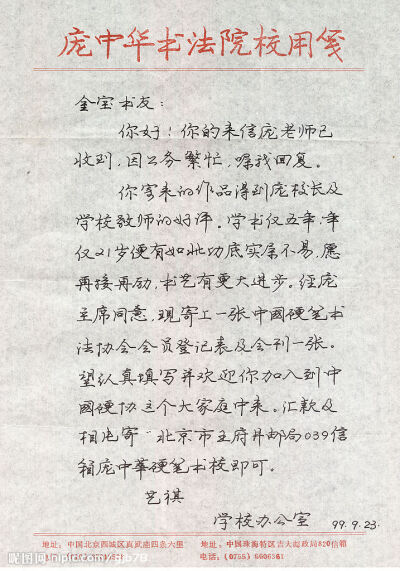 庞中华书法院校用笺
金宝书友：
你好！你的来信庞老师已
收到，因公务繁忙，嘱我回复。
你寄来的作品得到庞校长及
学校教师的好评。学书仅五年，年
仅21岁便有如此功底实属不易，愿
再接再励，书艺有更大进步。经庞
主席同意，现寄上一张中國硬笔书
法协会会员登记表及会刊一张。
望认真填写并欢迎你加入到中
國硬协这个大家庭中来。汇款及
相片寄"北京市王府井邮局039信
箱庞中華硬笔书校即可。
艺祺
学校办公室 99.9.23.
地址：中国北京西城区真武庙四条六里
地址：中国珠海特区吉大邮政局820信箱
电话：(0755) 6606361
昵图网 nipic.com